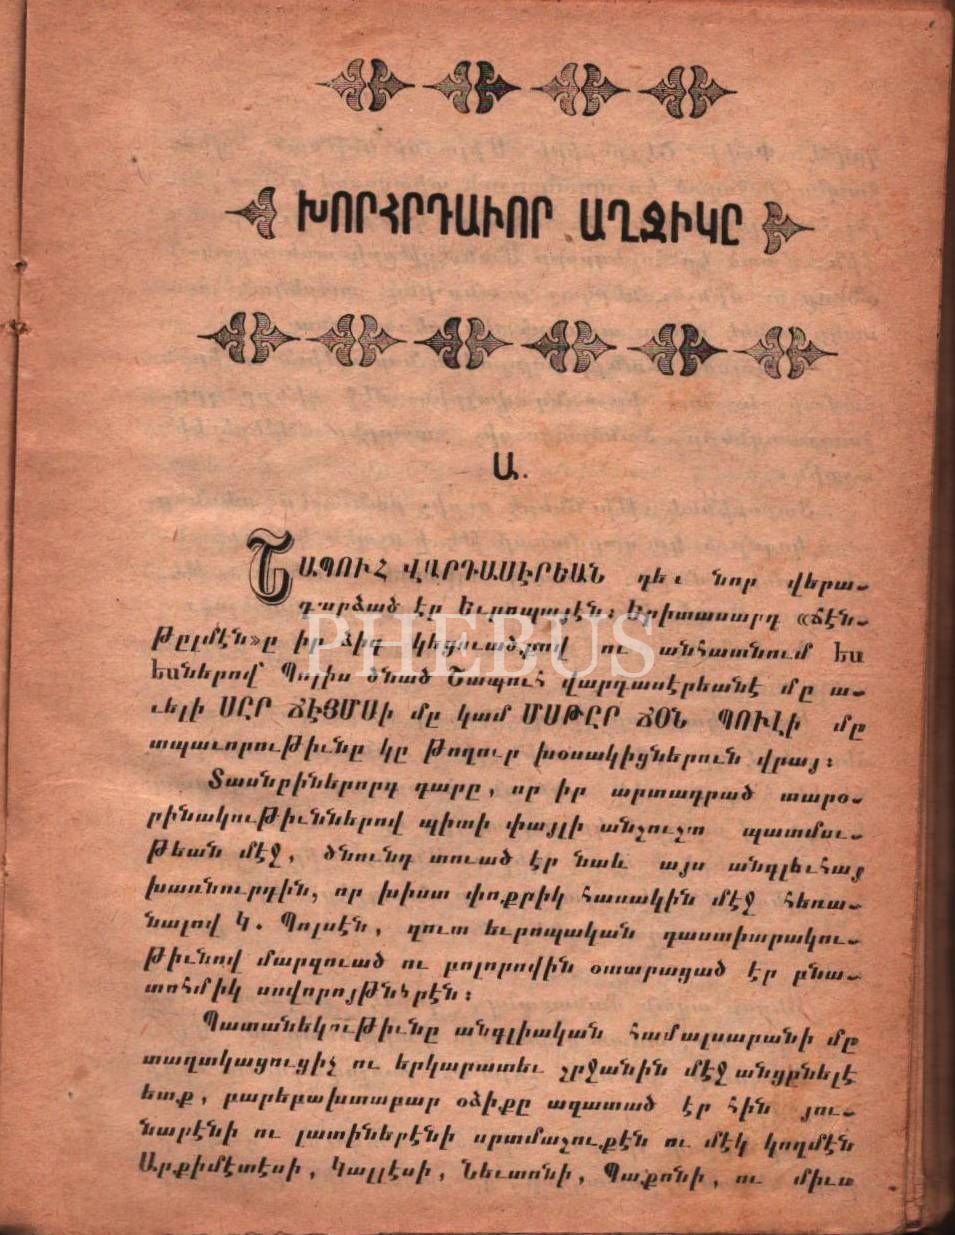 ԽՈՐՀՐԴԱՒՈՐ ԱՂՋԻԿԸ
Ա.
ՇԱՊՈՒՀ ՎԱՐԴԱՍԷՐԵԱՆ դեռ նոր վերա-
դարձած էր Եւրոպայէն։ Երիտասարդ «Ճէն-
թըլմէն»ը իր ձիգ կեցուածքով ու անհատնում ես
եսներով՝ Պոլիս ծնած Շապուհ Վարդասէրեանէ մը ա-
ւելի ՍԸՐ ՃԷՅՄՍի մը կամ ՄՍԹԸՐ ՃՕՆ ՊՈՒԼի մը
տպաւորութիւնը կը թողուր խօսակիցներուն վրայ։
Տասնըիններորդ դարը, որ իր արտադրած տարօ-
րինակութիւններով պիտի փայլի անշուշտ պատմու-
թեան մէջ, ծնունդ տուած էր նաև այս անգլեւհայ
խառնուրդին, որ խիստ փոքրիկ հասակին մէջ հեռա-
նալով Կ. Պոլսէն, զուտ եւրոպական դաստիարակու-
թիւնով մարզուած ու բոլորովին օտարացած էր բնա-
տոհմիկ սովորոյթներէն։
Պատանեկութիւնը անգլիական համալսարանի մը
տաղտկացուցիչ ու երկարատեւ շրջանին մէջ անցընելէ
ետք, բարեբախտաբար օձիքը ազատած էր հին յու-
նարէնի ու լատիներէնի սրտմաշուքէն ու մէկ կողմէն
Արքիմէտէսի, Կալլէսի, Նեւտոնի, Պաքոնի, ու միւս
PHEBUS